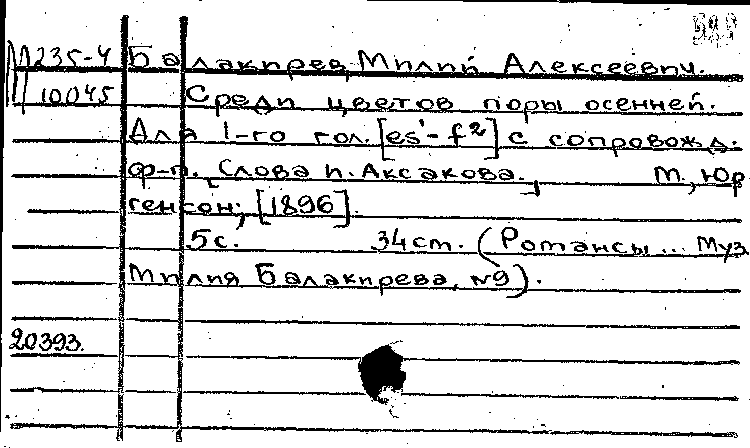 М 235-4 Балакирев, Милий Алексеевич.
10045 Среди цветов поры осенней.
Для 1-го гол. [es¹-f²] с сопровожд.
ф-п. [Слова И. Аксакова.] М., Юр
генсон, [1896].
5с. 34см. (Романсы... Муз.
Милия Балакирева, №9).
20393.